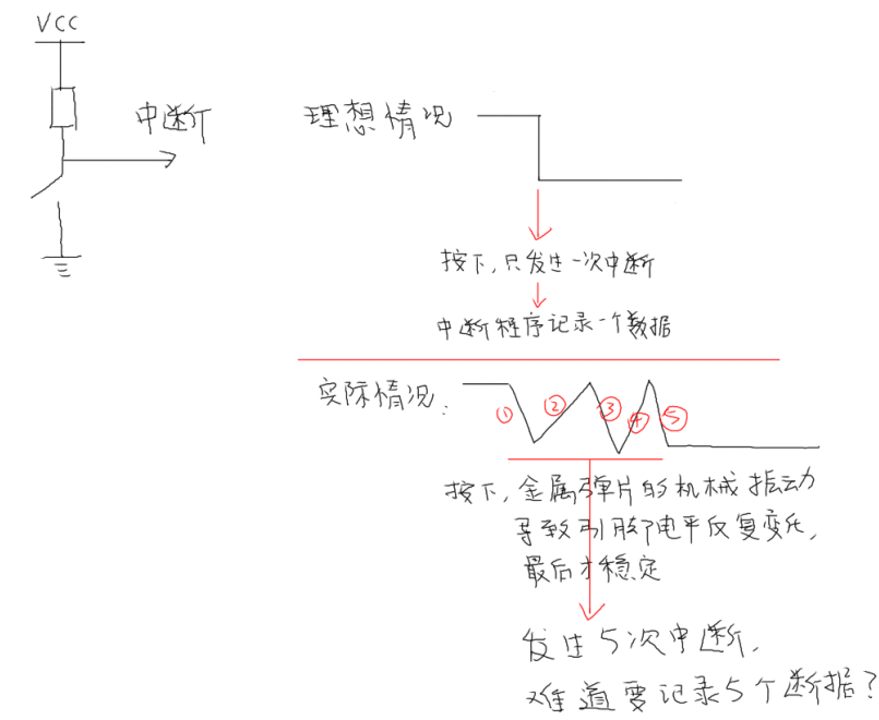 VCC
中断
理想情况
按下,只发生一次中断
中断程序记录一个数据
实际情况:
① ② ③ ④ ⑤
按下,金属弹片的机械振动
导致引脚电平反复变化,
最后才稳定
发生5次中断,
难道要记录5个断据?